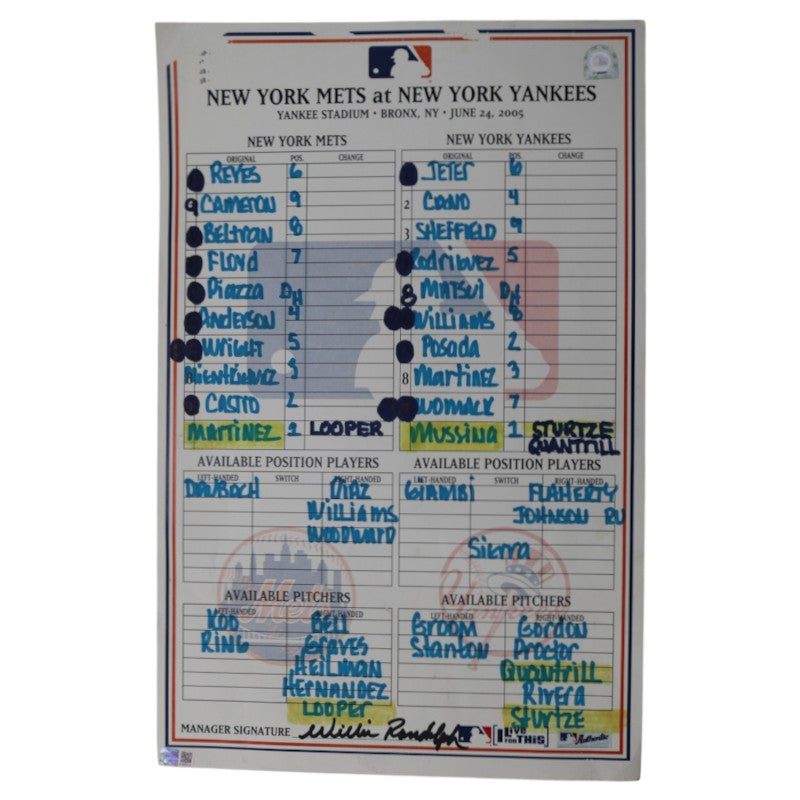 NEW YORK METS at NEW YORK YANKEES
YANKEE STADIUM • BRONX, NY • JUNE 24, 2005
NEW YORK METS
ORIGINAL POS. CHANGE
REYES 6
9 CAMERON 9
BELTRAN 8
FLOYD 7
PIAZZA DH
ANDERSON 4
WRIGHT 5
MIENTKIEWICZ 3
CASTRO 2
MARTINEZ 1 LOOPER
NEW YORK YANKEES
ORIGINAL POS. CHANGE
JETER 6
2 CANO 4
3 SHEFFIELD 9
RODRIGUEZ 5
8 MATSUI DH
WILLIAMS 8
POSADA 2
8 MARTINEZ 3
WOMACK 7
MUSSINA 1 STURTZE
QUANTRILL
AVAILABLE POSITION PLAYERS
LEFT-HANDED SWITCH RIGHT-HANDED
DAUBACH DIAZ
WILLIAMS
WOODWARD
AVAILABLE POSITION PLAYERS
LEFT-HANDED SWITCH RIGHT-HANDED
GIAMBI FLAHERTY
JOHNSON RU
SIERRA
AVAILABLE PITCHERS
LEFT-HANDED RIGHT-HANDED
KOO BELL
RING GRAVES
HEILMAN
HERNANDEZ
LOOPER
AVAILABLE PITCHERS
LEFT-HANDED RIGHT-HANDED
GROOM GORDON
STANTON PROCTOR
QUANTRILL
RIVERA
STURTZE
MANAGER SIGNATURE Willie Randolph
I Live for This
Authentic
Mets